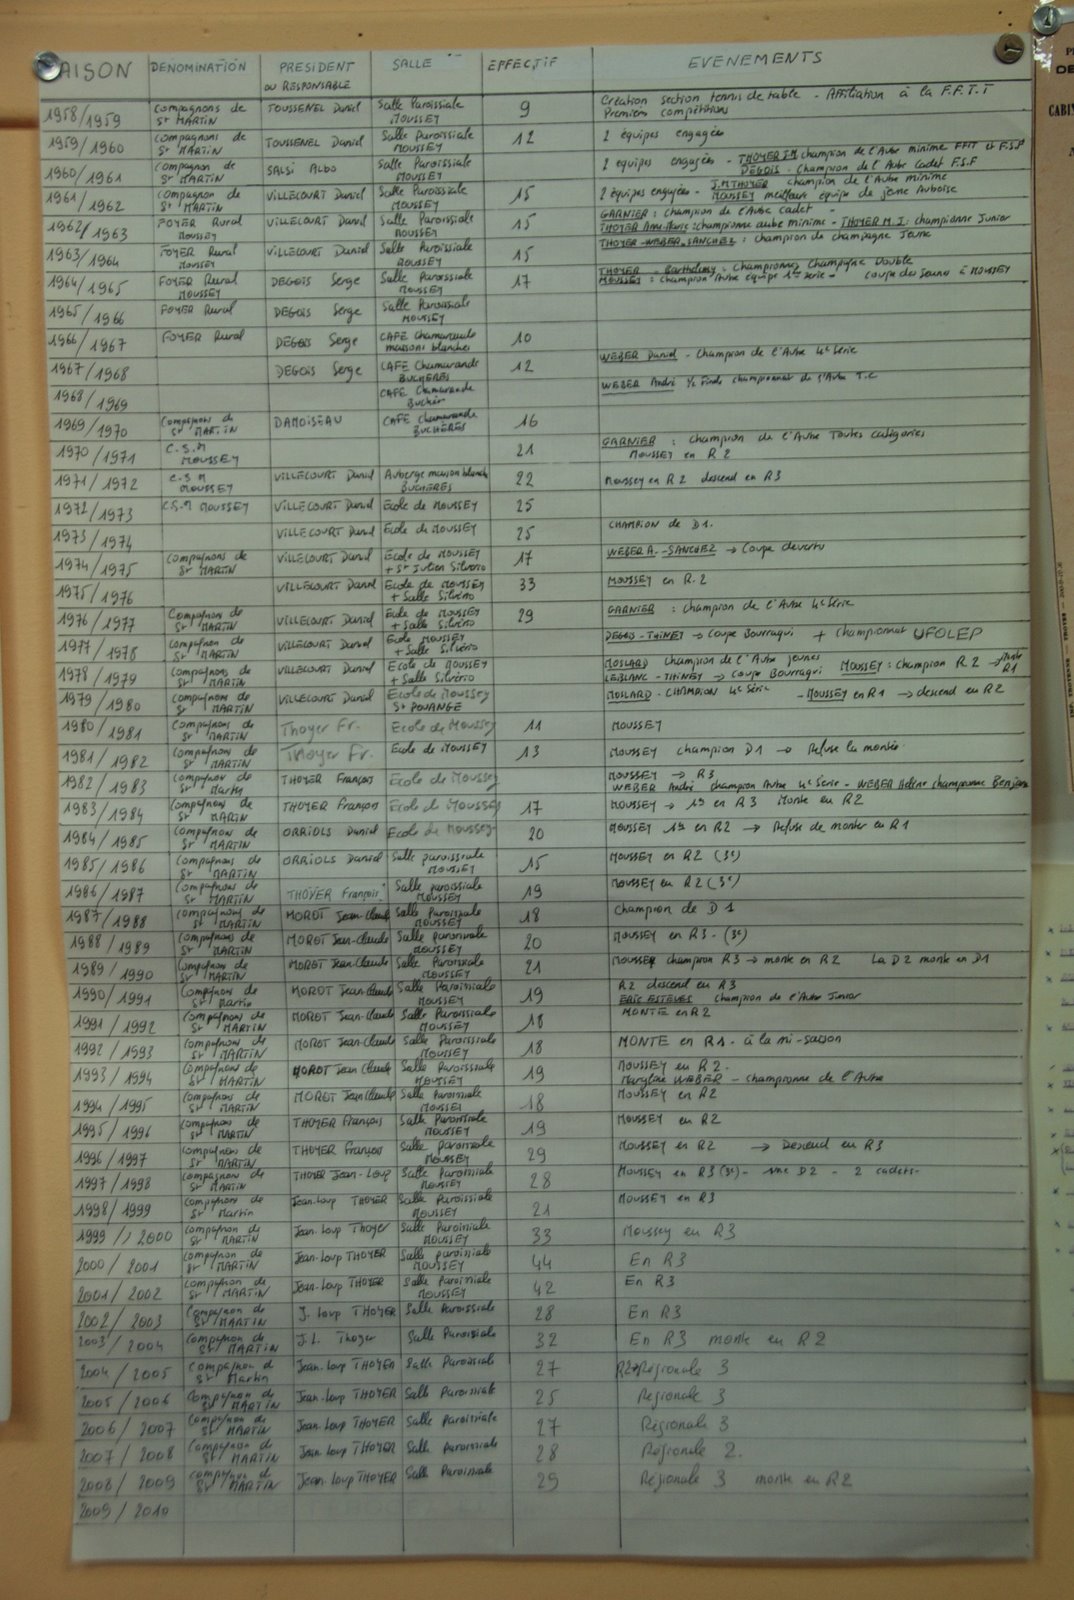 SAISON DENOMINATION PRESIDENT OU RESPONSABLE SALLE EFFECTIF EVENEMENTS
1958/1959 Compagnons de St MARTIN TOUSSENEL Daniel Salle Paroissiale MOUSSEY 9 Création section tennis de table - Affiliation à la F.F.T.T Premiers compétitions
1959/1960 Compagnons de St MARTIN TOUSSENEL Daniel Salle Paroissiale MOUSSEY 12 2 équipes engagées
1960/1961 Compagnon de St MARTIN SALSI Albo Salle Paroissiale MOUSSEY 2 équipes engagées - THOYER J.M champion de l'Aube minime FFTT et F.S.F DEGOIS - Champion de l'Aube Cadet F.S.F
1961/1962 Compagnon de St MARTIN VILLECOURT Daniel Salle Paroissiale MOUSSEY 15 2 équipes engagées - J.M THOYER champion de l'Aube minime MOUSSEY meilleure équipe de jeune Auboise
1962/1963 FOYER Rural MOUSSEY VILLECOURT Daniel Salle Paroissiale MOUSSEY 15 GARNIER : champion de l'Aube Cadet - THOYER Anne-Marie : championne aube minime - THOYER M.J : championne Junior
1963/1964 FOYER Rural MOUSSEY VILLECOURT Daniel Salle Paroissiale MOUSSEY 15 THOYER - WEBER - SANCHEZ : champion de champagne Jeune
1964/1965 FOYER Rural MOUSSEY DEGOIS Serge Salle Paroissiale MOUSSEY 17 THOYER - Barthelemy : Championnes Champagne Double MOUSSEY : champion Aube équipe 1ère série - coupe des jeunes à MOUSSEY
1965/1966 FOYER Rural DEGOIS Serge Salle Paroissiale MOUSSEY
1966/1967 FOYER Rural DEGOIS Serge CAFE Chamarande maisons blanches 10
1967/1968 DEGOIS Serge CAFE Chamarande BUCHERES 12 WEBER Daniel - Champion de l'Aube 4e Série
1968/1969 CAFE Chamarande Buchère WEBER André 1/2 finale championnat de l'Aube T.C
1969/1970 Compagnons de St MARTIN DAMOISEAU CAFE Chamarande BUCHÈRES 16
1970/1971 C.S.M MOUSSEY 21 GARNIER : champion de l'Aube Toutes catégories MOUSSEY en R2
1971/1972 C.S M MOUSSEY VILLECOURT Daniel Auberge maison blanche BUCHERES 22 Moussey en R2 descend en R3
1972/1973 C.S.M MOUSSEY VILLECOURT Daniel Ecole de MOUSSEY 25
1973/1974 VILLECOURT Daniel Ecole de MOUSSEY 25 CHAMPION de D1.
1974/1975 Compagnons de St MARTIN VILLECOURT Daniel Ecole de MOUSSEY + St Julien Silvério 17 WEBER A. - SANCHEZ → Coupe
1975/1976 VILLECOURT Daniel Ecole de MOUSSEY + Salle Silvério 33 MOUSSEY en R.2
1976/1977 Compagnon de St MARTIN VILLECOURT Daniel Ecole de MOUSSEY + Salle Silvério 29 GARNIER : champion de l'Aube 4e Série
1977/1978 Compagnon de St MARTIN VILLECOURT Daniel Ecole MOUSSEY + Salle Silvério DEGOIS - THINEY → Coupe Bourragui + championnat UFOLEP
1978/1979 Compagnons de St MARTIN VILLECOURT Daniel Ecole de MOUSSEY + Salle Silvério MOSLARD champion de l'Aube jeunes MOUSSEY : champion R.2 → Monte R1 LEBLANC - THINEY → Coupe Bourragui
1979/1980 Compagnons de St MARTIN VILLECOURT Daniel Ecole de Moussey St POUANGE MOSLARD - CHAMPION 4e Série - MOUSSEY en R1 → descend en R2
1980/1981 Compagnons de St MARTIN Thoyer Fr. Ecole de Moussey 11 MOUSSEY
1981/1982 Compagnons de St MARTIN Thoyer Fr. Ecole de MOUSSEY 13 MOUSSEY champion D1 → Refuse la montée
1982/1983 Compagnon de St Martin THOYER François Ecole de Moussey MOUSSEY → R3 WEBER André champion Aube 4e Série - WEBER Hélène championne Benjamine
1983/1984 Compagnons de St MARTIN THOYER François Ecole de Moussey 17 MOUSSEY → 1er en R3 Monte en R2
1984/1985 Compagnon de St MARTIN ORRIOLS Daniel Ecole de Moussey 20 MOUSSEY 1er en R2 → Refuse de monter en R1
1985/1986 Compagnons de St MARTIN ORRIOLS Daniel Salle paroissiale MOUSSEY 15 MOUSSEY en R2 (3e)
1986/1987 Compagnons de St MARTIN THOYER François Salle paroissiale MOUSSEY 19 MOUSSEY en R2 (3e)
1987/1988 Compagnons de St MARTIN MOROT Jean-Claude Salle Paroissiale MOUSSEY 18 Champion de D1
1988/1989 Compagnons de St MARTIN MOROT Jean-Claude Salle paroissiale MOUSSEY 20 MOUSSEY en R3 - (3e)
1989/1990 Compagnons de St MARTIN MOROT Jean-Claude Salle Paroissiale MOUSSEY 21 MOUSSEY champion R3 → monte en R2 La D2 monte en D1
1990/1991 Compagnons de St Martin MOROT Jean-Claude Salle Paroissiale MOUSSEY 19 R2 descend en R3 ERIC ESTEVES champion de l'Aube Junior
1991/1992 Compagnons de St MARTIN MOROT Jean-Claude Salle Paroissiale MOUSSEY 18 MONTE en R2
1992/1993 Compagnons de St MARTIN MOROT Jean-Claude Salle Paroissiale MOUSSEY 18 MONTE en R1 - à la mi-saison
1993/1994 Compagnons de St MARTIN MOROT Jean Claude Salle Paroissiale MOUSSEY 19 MOUSSEY en R2. Marylène WEBER - championne de l'Aube
1994/1995 Compagnons de St MARTIN MOROT Jean Claude Salle Paroissiale MOUSSEY 18 MOUSSEY en R2
1995/1996 Compagnons de St MARTIN THOYER François Salle Paroissiale MOUSSEY 19 MOUSSEY en R2
1996/1997 Compagnons de St MARTIN THOYER François Salle paroissiale MOUSSEY 29 MOUSSEY en R2 → Descend en R3
1997/1998 Compagnons de St MARTIN THOYER Jean-Loup Salle Paroissiale MOUSSEY 28 MOUSSEY en R3 (3e) - une D2 - 2 cadets.
1998/1999 Compagnons de St Martin Jean.Loup THOYER Salle Paroissiale MOUSSEY 21 MOUSSEY en R3
1999/2000 Compagnon de St MARTIN Jean.Loup Thoyer Salle Paroissiale MOUSSEY 33 Moussey en R3
2000/2001 Compagnon de St MARTIN Jean-Loup THOYER Salle paroissiale MOUSSEY 44 En R3
2001/2002 Compagnon de St MARTIN Jean-Loup THOYER Salle Paroissiale MOUSSEY 42 En R3
2002/2003 Compagnon de St MARTIN J. Loup THOYER Salle Paroissiale 28 En R3
2003/2004 Compagnon de St MARTIN J.L. Thoyer Salle Paroissiale 32 En R3 monte en R2
2004/2005 Compagnon d St Martin Jean-Loup THOYER Salle Paroissiale 27 R2→Régionale 3
2005/2006 Compagnon de St MARTIN Jean-Loup THOYER Salle Paroissiale 25 Régionale 3
2006/2007 Compagnon de St MARTIN Jean-Loup THOYER Salle Paroissiale 27 Régionale 3
2007/2008 Compagnon de St MARTIN Jean-Loup THOYER Salle Paroissiale 28 Régionale 2.
2008/2009 Compagnon de St MARTIN Jean-Loup THOYER Salle Paroissiale 29 Régionale 3 monte en R2
2009/2010